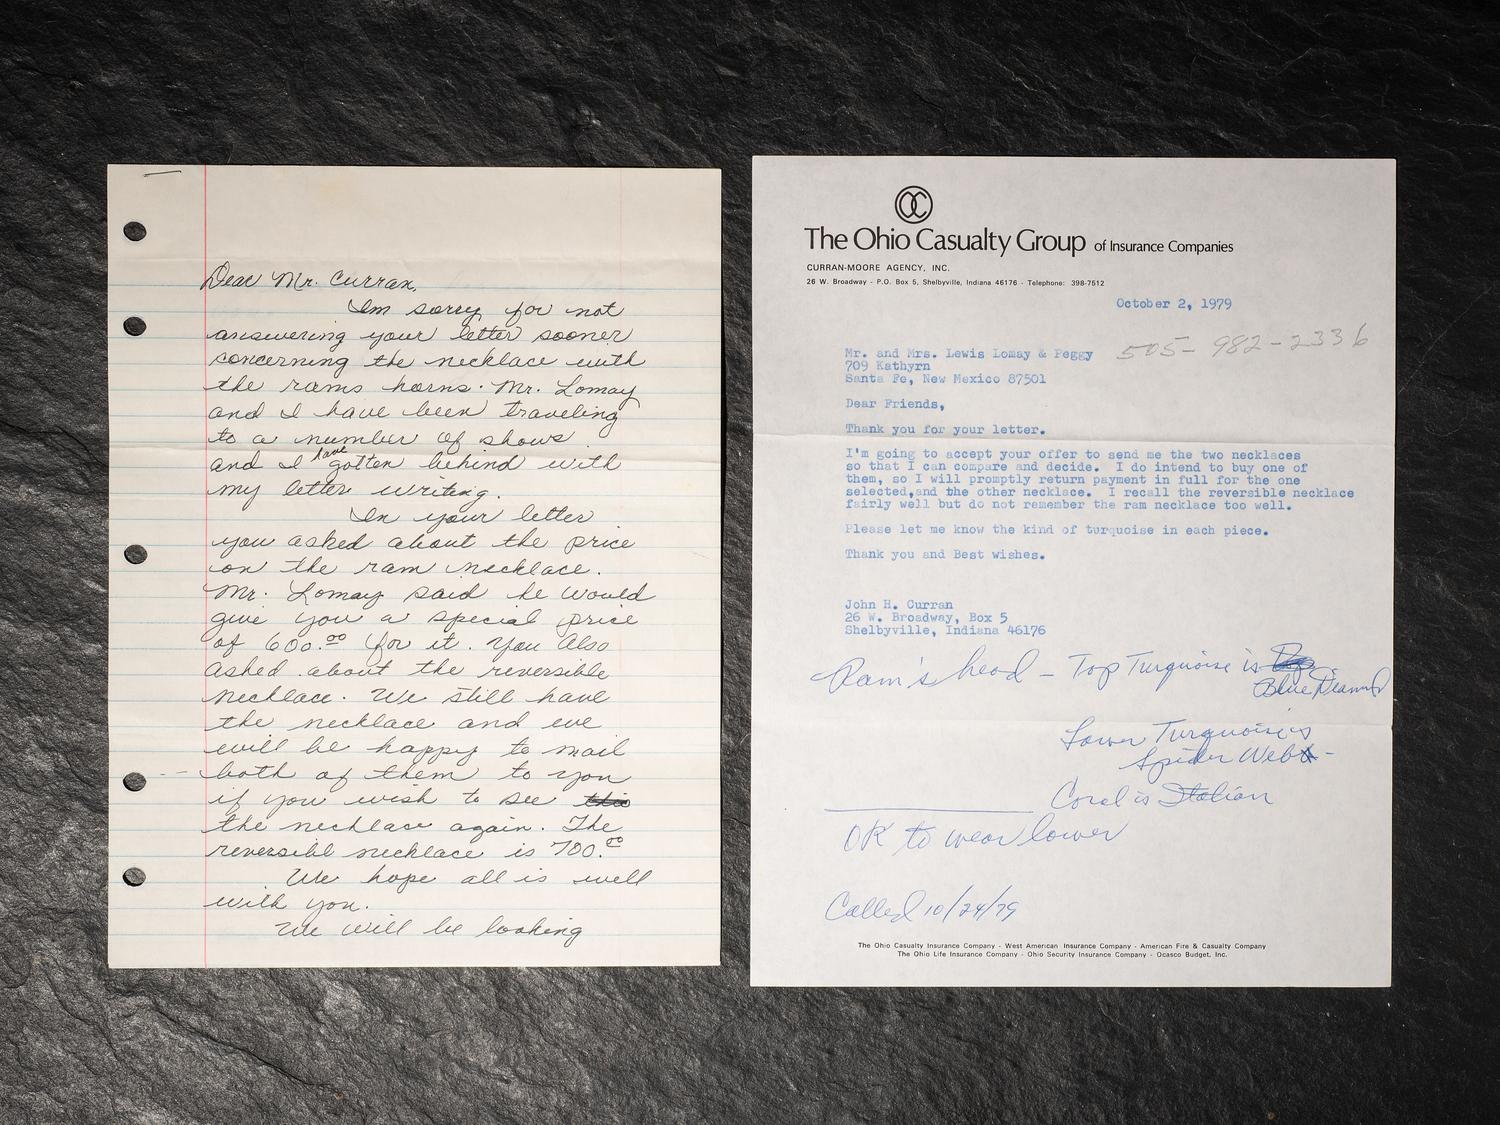 Dear Mr. Curran,
Im sorry for not
answering your letter sooner
concerning the necklace with
the rams horns. Mr. Lomay
and I have been traveling
to a number of shows
and I have gotten behind with
my letter writing.
In your letter
you asked about the price
on the ram necklace.
Mr. Lomay said he would
give you a special price
of 600.00 for it. You Also
asked about the reversible
necklace. We still have
the necklace and we
will be happy to mail
both of them to you
if you wish to see this
the necklace again. The
reversible necklace is 700.00
We hope all is well
with you.
We will be looking
OC
The Ohio Casualty Group of Insurance Companies
CURRAN-MOORE AGENCY, INC.
26 W. Broadway - P.O. Box 5, Shelbyville, Indiana 46176 - Telephone: 398-7512
October 2, 1979
505-982-2336
Mr. and Mrs. Lewis Lomay & Peggy
709 Kathyrn
Santa Fe, New Mexico 87501
Dear Friends,
Thank you for your letter.
I'm going to accept your offer to send me the two necklaces
so that I can compare and decide. I do intend to buy one of
them, so I will promptly return payment in full for the one
selected,and the other necklace. I recall the reversible necklace
fairly well but do not remember the ram necklace too well.
Please let me know the kind of turquoise in each piece.
Thank you and Best wishes.
John H. Curran
26 W. Broadway, Box 5
Shelbyville, Indiana 46176
Ram's head - Top Turquoise is
Blue Diamond
Lower Turquoise is
Spider Web -
Coral is Italian
OK to wear lower
Called 10/24/79
The Ohio Casualty Insurance Company - West American Insurance Company - American Fire & Casualty Company
The Ohio Life Insurance Company - Ohio Security Insurance Company - Ocasco Budget, Inc.